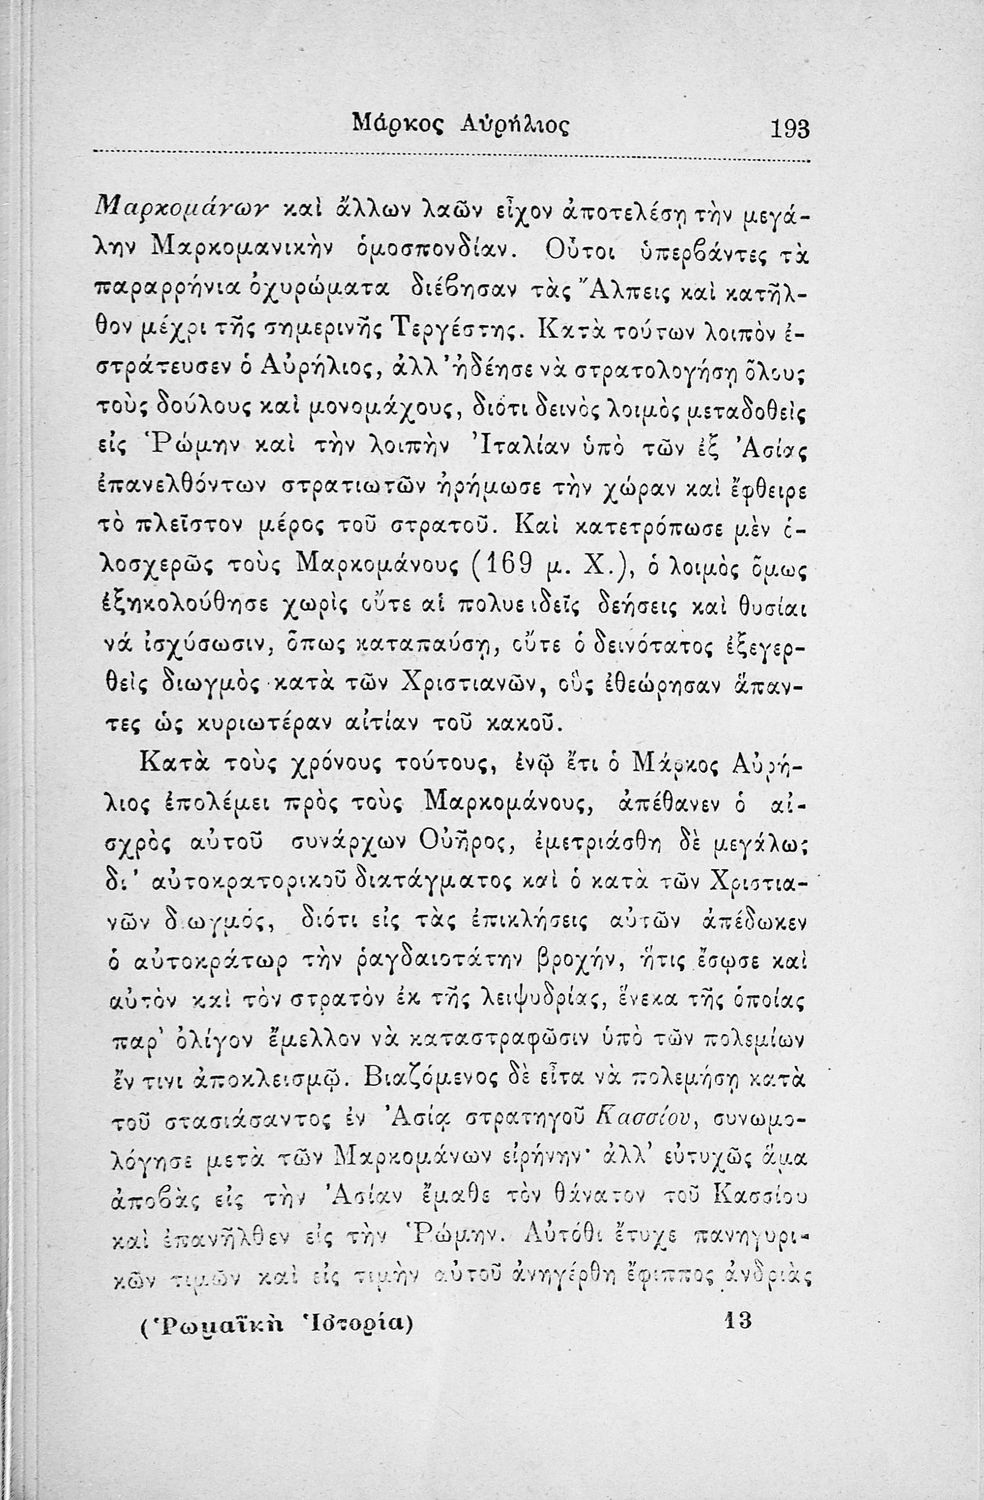 Μάρκος Αὐρήλιος 193
Μαρκομάνων καὶ ἄλλων λαῶν εἶχον ἀποτελέσῃ τὴν μεγά-
λην Μαρκομανικὴν ὁμοσπονδίαν. Οὗτοι ὑπερβάντες τὰ
παραρρήνια ὀχυρώματα διέβησαν τὰς Ἄλπεις καὶ κατῆλ-
θον μέχρι τῆς σημερινῆς Τεργέστης. Κατὰ τούτων λοιπὸν ἐ-
στράτευσεν ὁ Αὐρήλιος, ἀλλ' ἠδέησε νὰ στρατολογήσῃ ὅλους
τοὺς δούλους καὶ μονομάχους, διότι δεινὸς λοιμὸς μεταδοθεὶς
εἰς Ῥώμην καὶ τὴν λοιπὴν Ἰταλίαν ὑπὸ τῶν ἐξ Ἀσίας
ἐπανελθόντων στρατιωτῶν ἠρήμωσε τὴν χώραν καὶ ἔφθειρε
τὸ πλεῖστον μέρος τοῦ στρατοῦ. Καὶ κατετρόπωσε μὲν ὁ-
λοσχερῶς τοὺς Μαρκομάνους (169 μ. Χ.), ὁ λοιμὸς ὅμως
ἐξηκολούθησε χωρὶς οὔτε αἱ πολυειδεῖς δεήσεις καὶ θυσίαι
νά ἰσχύσωσιν, ὅπως καταπαύσῃ, οὔτε ὁ δεινότατος ἐξεγερ-
θεὶς διωγμὸς κατὰ τῶν Χριστιανῶν, οὓς ἐθεώρησαν ἅπαν-
τες ὡς κυριωτέραν αἰτίαν τοῦ κακοῦ.
Κατὰ τοὺς χρόνους τούτους, ἐνῷ ἔτι ὁ Μάρκος Αὐρή-
λιος ἐπολέμει πρὸς τοὺς Μαρκομάνους, ἀπέθανεν ὁ αἰ-
σχρὸς αὐτοῦ συνάρχων Οὐῆρος, ἐμετριάσθη δὲ μεγάλως
δι' αὐτοκρατορικοῦ διατάγματος καὶ ὁ κατὰ τῶν Χριστια-
νῶν διωγμός, διότι εἰς τὰς ἐπικλήσεις αὐτῶν ἀπέδωκεν
ὁ αὐτοκράτωρ τὴν ῥαγδαιοτάτην βροχήν, ἥτις ἔσῳσε καὶ
αὐτὸν καὶ τὸν στρατὸν ἐκ τῆς λειψυδρίας, ἕνεκα τῆς ὁποίας
παρ' ὀλίγον ἔμελλον νὰ καταστραφῶσιν ὑπὸ τῶν πολεμίων
ἔν τινι ἀποκλεισμῷ. Βιαζόμενος δὲ εἶτα νὰ πολεμήσῃ κατὰ
τοῦ στασιάσαντος ἐν Ἀσίᾳ στρατηγοῦ Κασσίου, συνωμο-
λόγησε μετὰ τῶν Μαρκομάνων εἰρήνην· ἀλλ' εὐτυχῶς ἅμα
ἀποβὰς εἰς τὴν Ἀσίαν ἔμαθε τὸν θάνατον τοῦ Κασσίου
καὶ ἐπανῆλθεν εἰς τὴν Ῥώμην. Αὐτόθι ἔτυχε πανηγυρι-
κῶν τιμῶν καὶ εἰς τιμὴν αὐτοῦ ἀνηγέρθη ἔφιππος ἀνδριὰς
(Ῥωμαϊκὴ Ἱστορία) 13